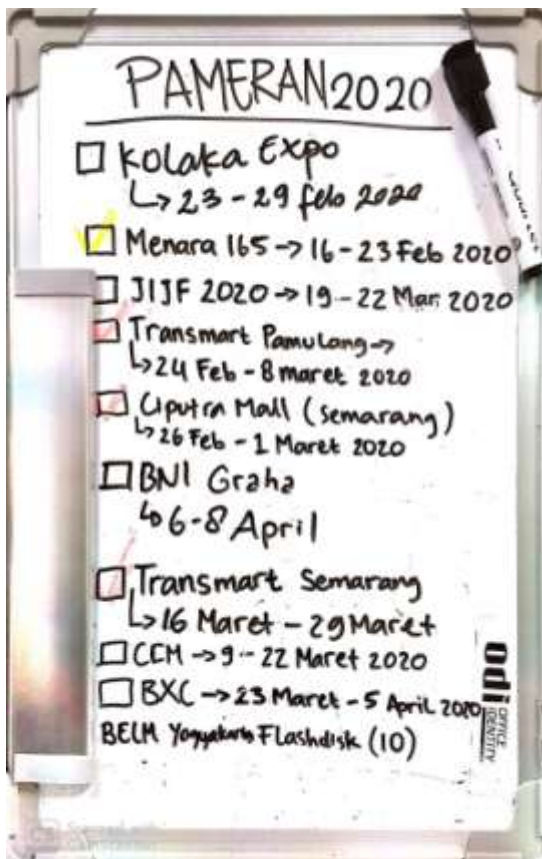 PAMERAN 2020
Kolaka Expo
↳ 23 - 29 feb 2020
Menara 165 → 16 - 23 Feb 2020
JIJF 2020 → 19 - 22 Mar 2020
Transmart Pamulang →
↳ 24 Feb - 8 maret 2020
Ciputra Mall (Semarang)
↳ 26 Feb - 1 Maret 2020
BNI Graha
↳ 6 - 8 April
Transmart Semarang
↳ 16 Maret - 29 Maret
CCM → 9 - 22 Maret 2020
BXC → 23 Maret - 5 April 2020
BELM Yogyakarta Flashdisk (10)
odi OFFICE IDENTITY